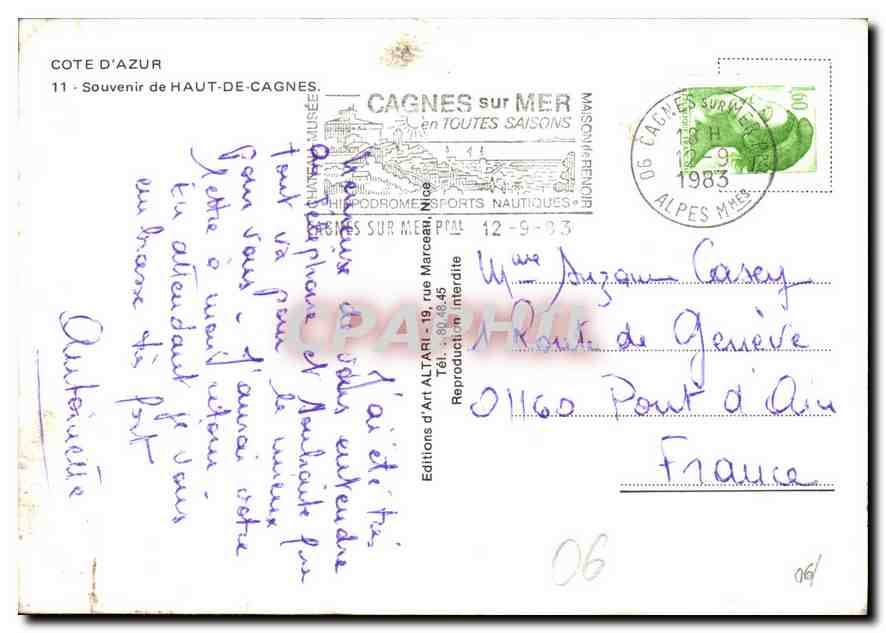 COTE D'AZUR
11 - Souvenir de HAUT-DE-CAGNES.
CHATEAU MUSÉE
CAGNES sur MER
en TOUTES SAISONS
MAISON de RENOIR
HIPPODROME SPORTS NAUTIQUES
CAGNES SUR MER Ppal 12-9-83
06 CAGNES SUR MER Ppal
18 H
12-9
1983
ALPES Mmes
1,60
J'ai été très
heureuse de vous entendre
au téléphone et souhaite que
tout va pour le mieux
pour vous - J'aurai votre
lettre à mon retour -
En attendant je vous
embrasse très fort
Antoinette
Editions d'Art ALTARI - 19, rue Marceau, Nice
Tél. : 80.48.45
Reproduction Interdite
Mme Suzanne Casey
1 Route de Genève
01160 Pont d'Ain
France
CPAPHIL
06
06/